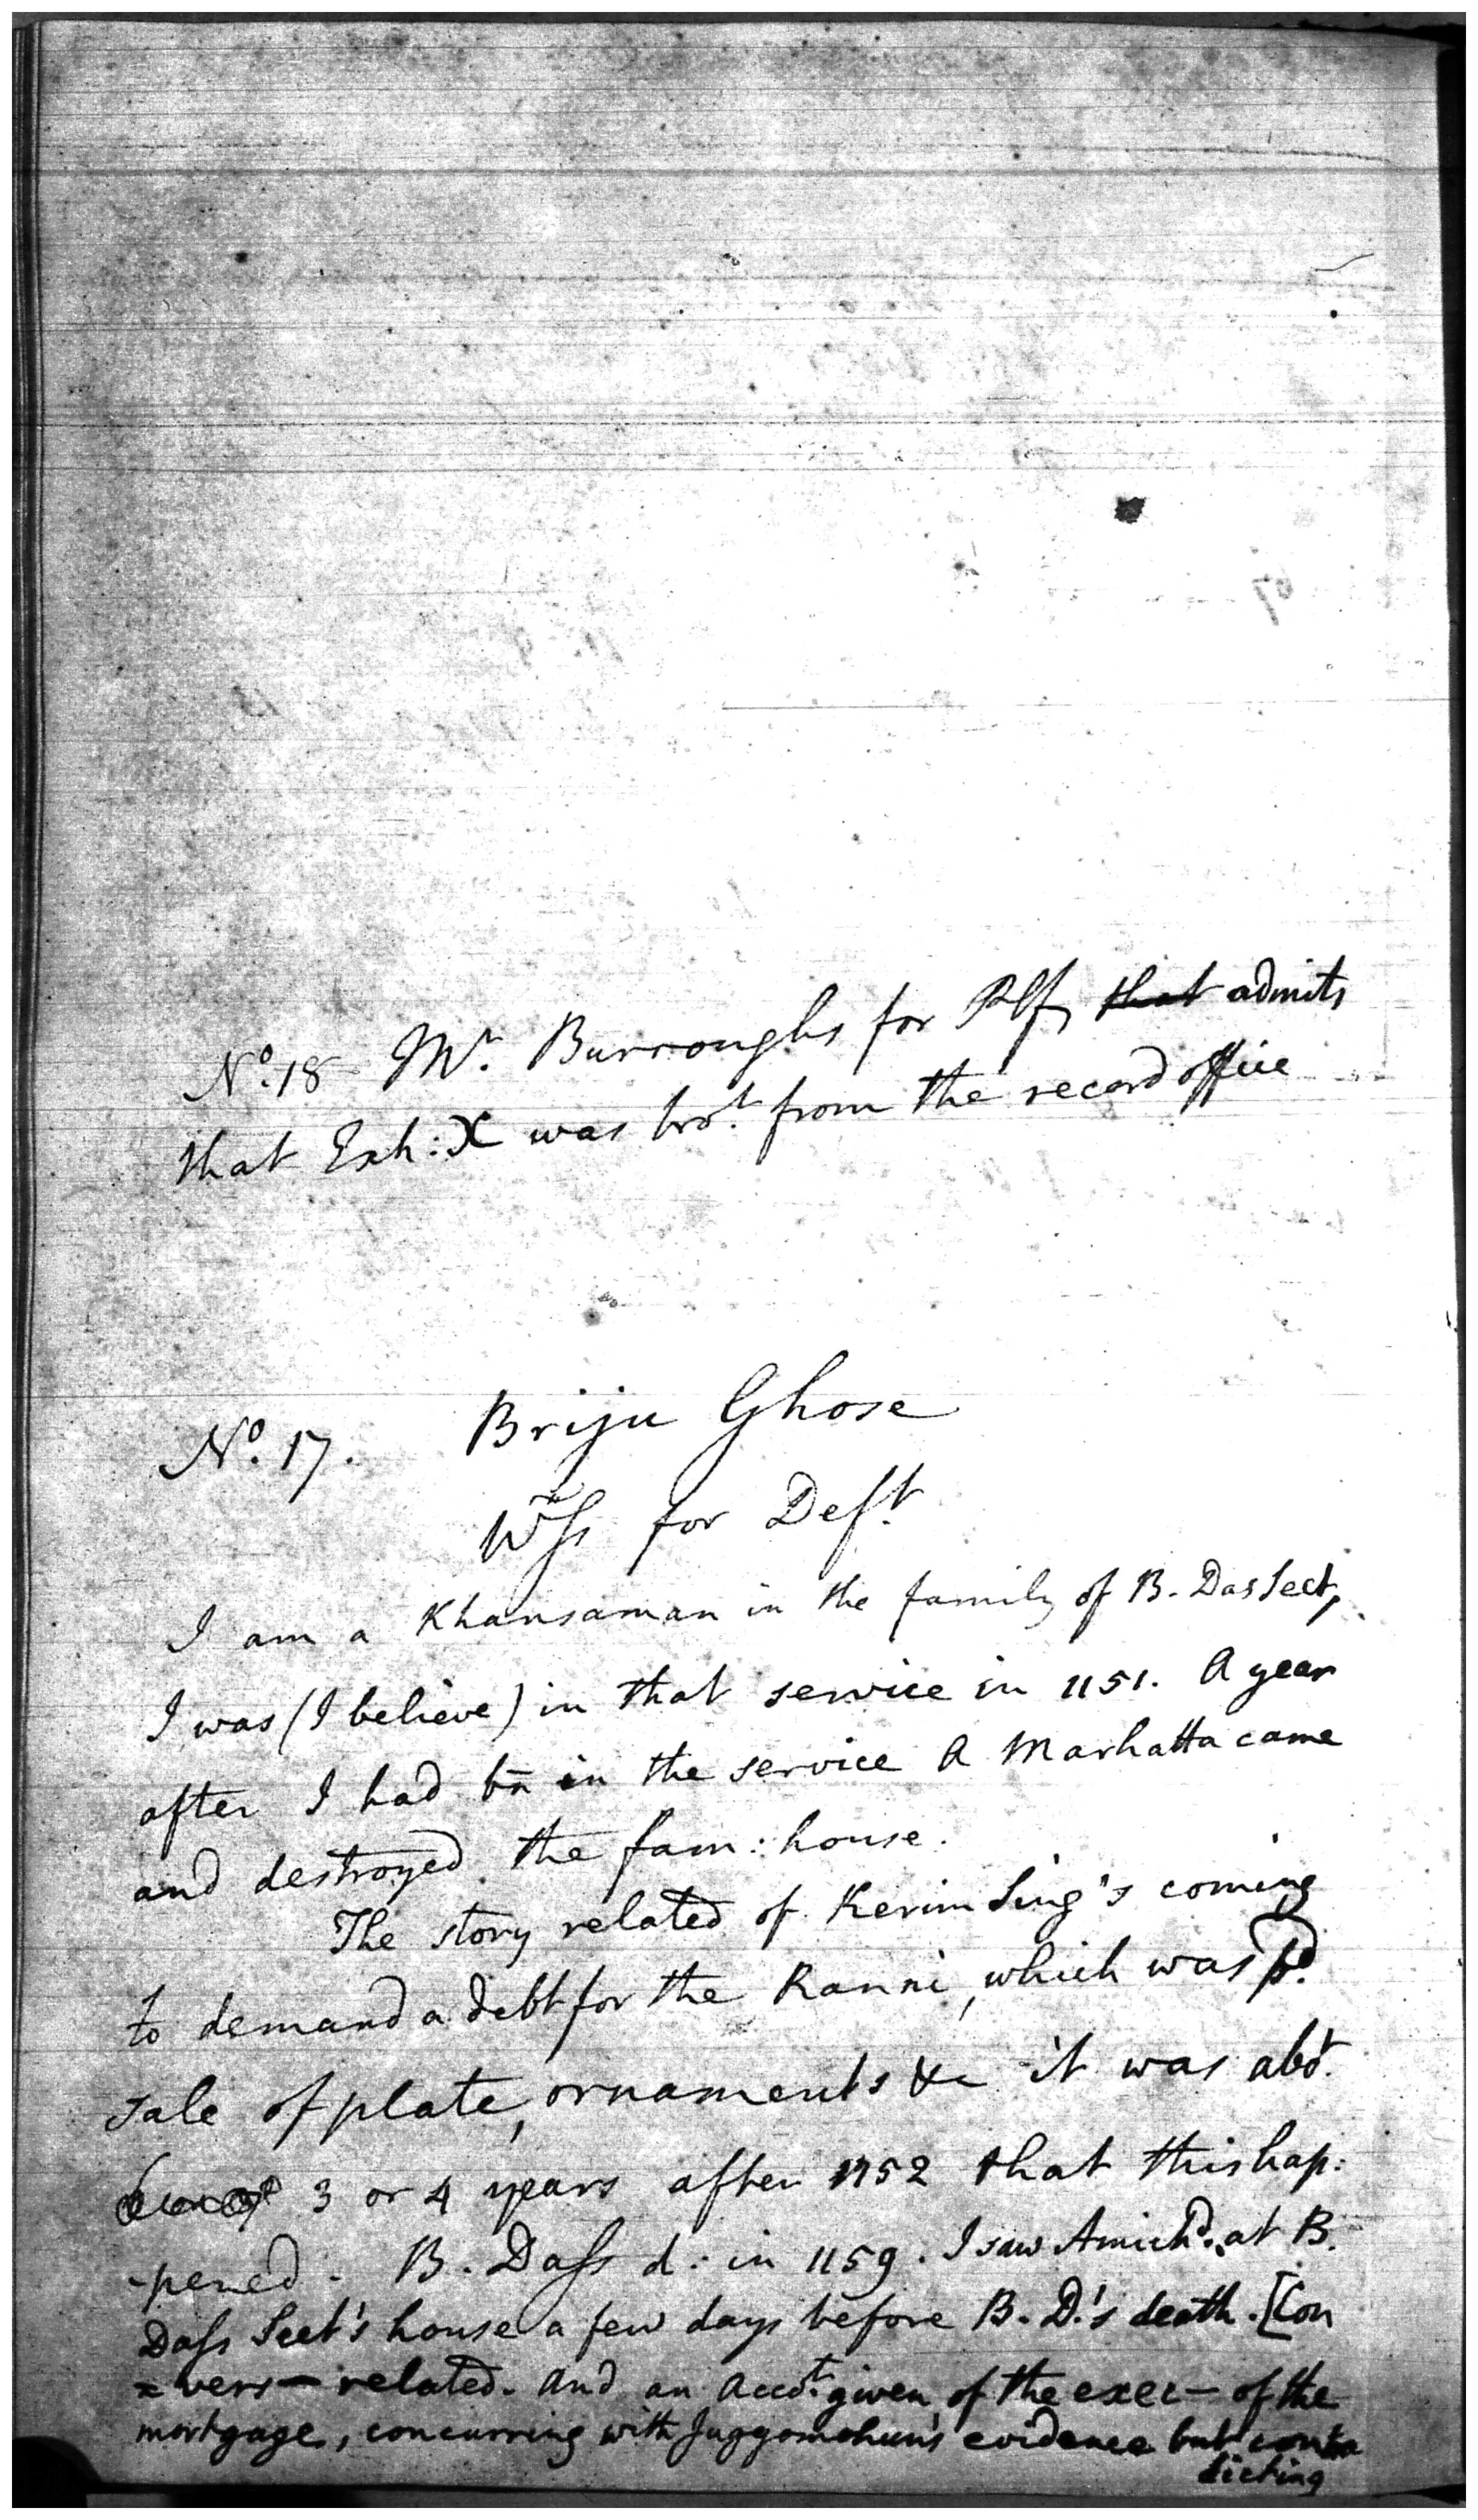 No. 18 Mr. Burroughs for Plf, that admits
that Exh: X was brot. from the record office
No. 17. Briju Ghose
Wss for Deft.
I am a Khansaman in the family of B. Das Seet,
I was (I believe) in that service in 1151. A year
after I had bn in the service a Marhatta came
and destroyed the fam: house.
The story related of Kerim Sing's coming
to demand a debt for the Ranni, which was pd.
sale of plate, ornaments &c it was abot.
3 or 4 years after 1152 that this hap:
-pened. B. Dass d: in 1159. I saw Amichd. at B.
Dass Seet's house a few days before B. D.'s death. [Con
=vers— related. and an accot. given of the exec— of the
mortgage, concurring with Juggomohun's evidence but contra
dicting